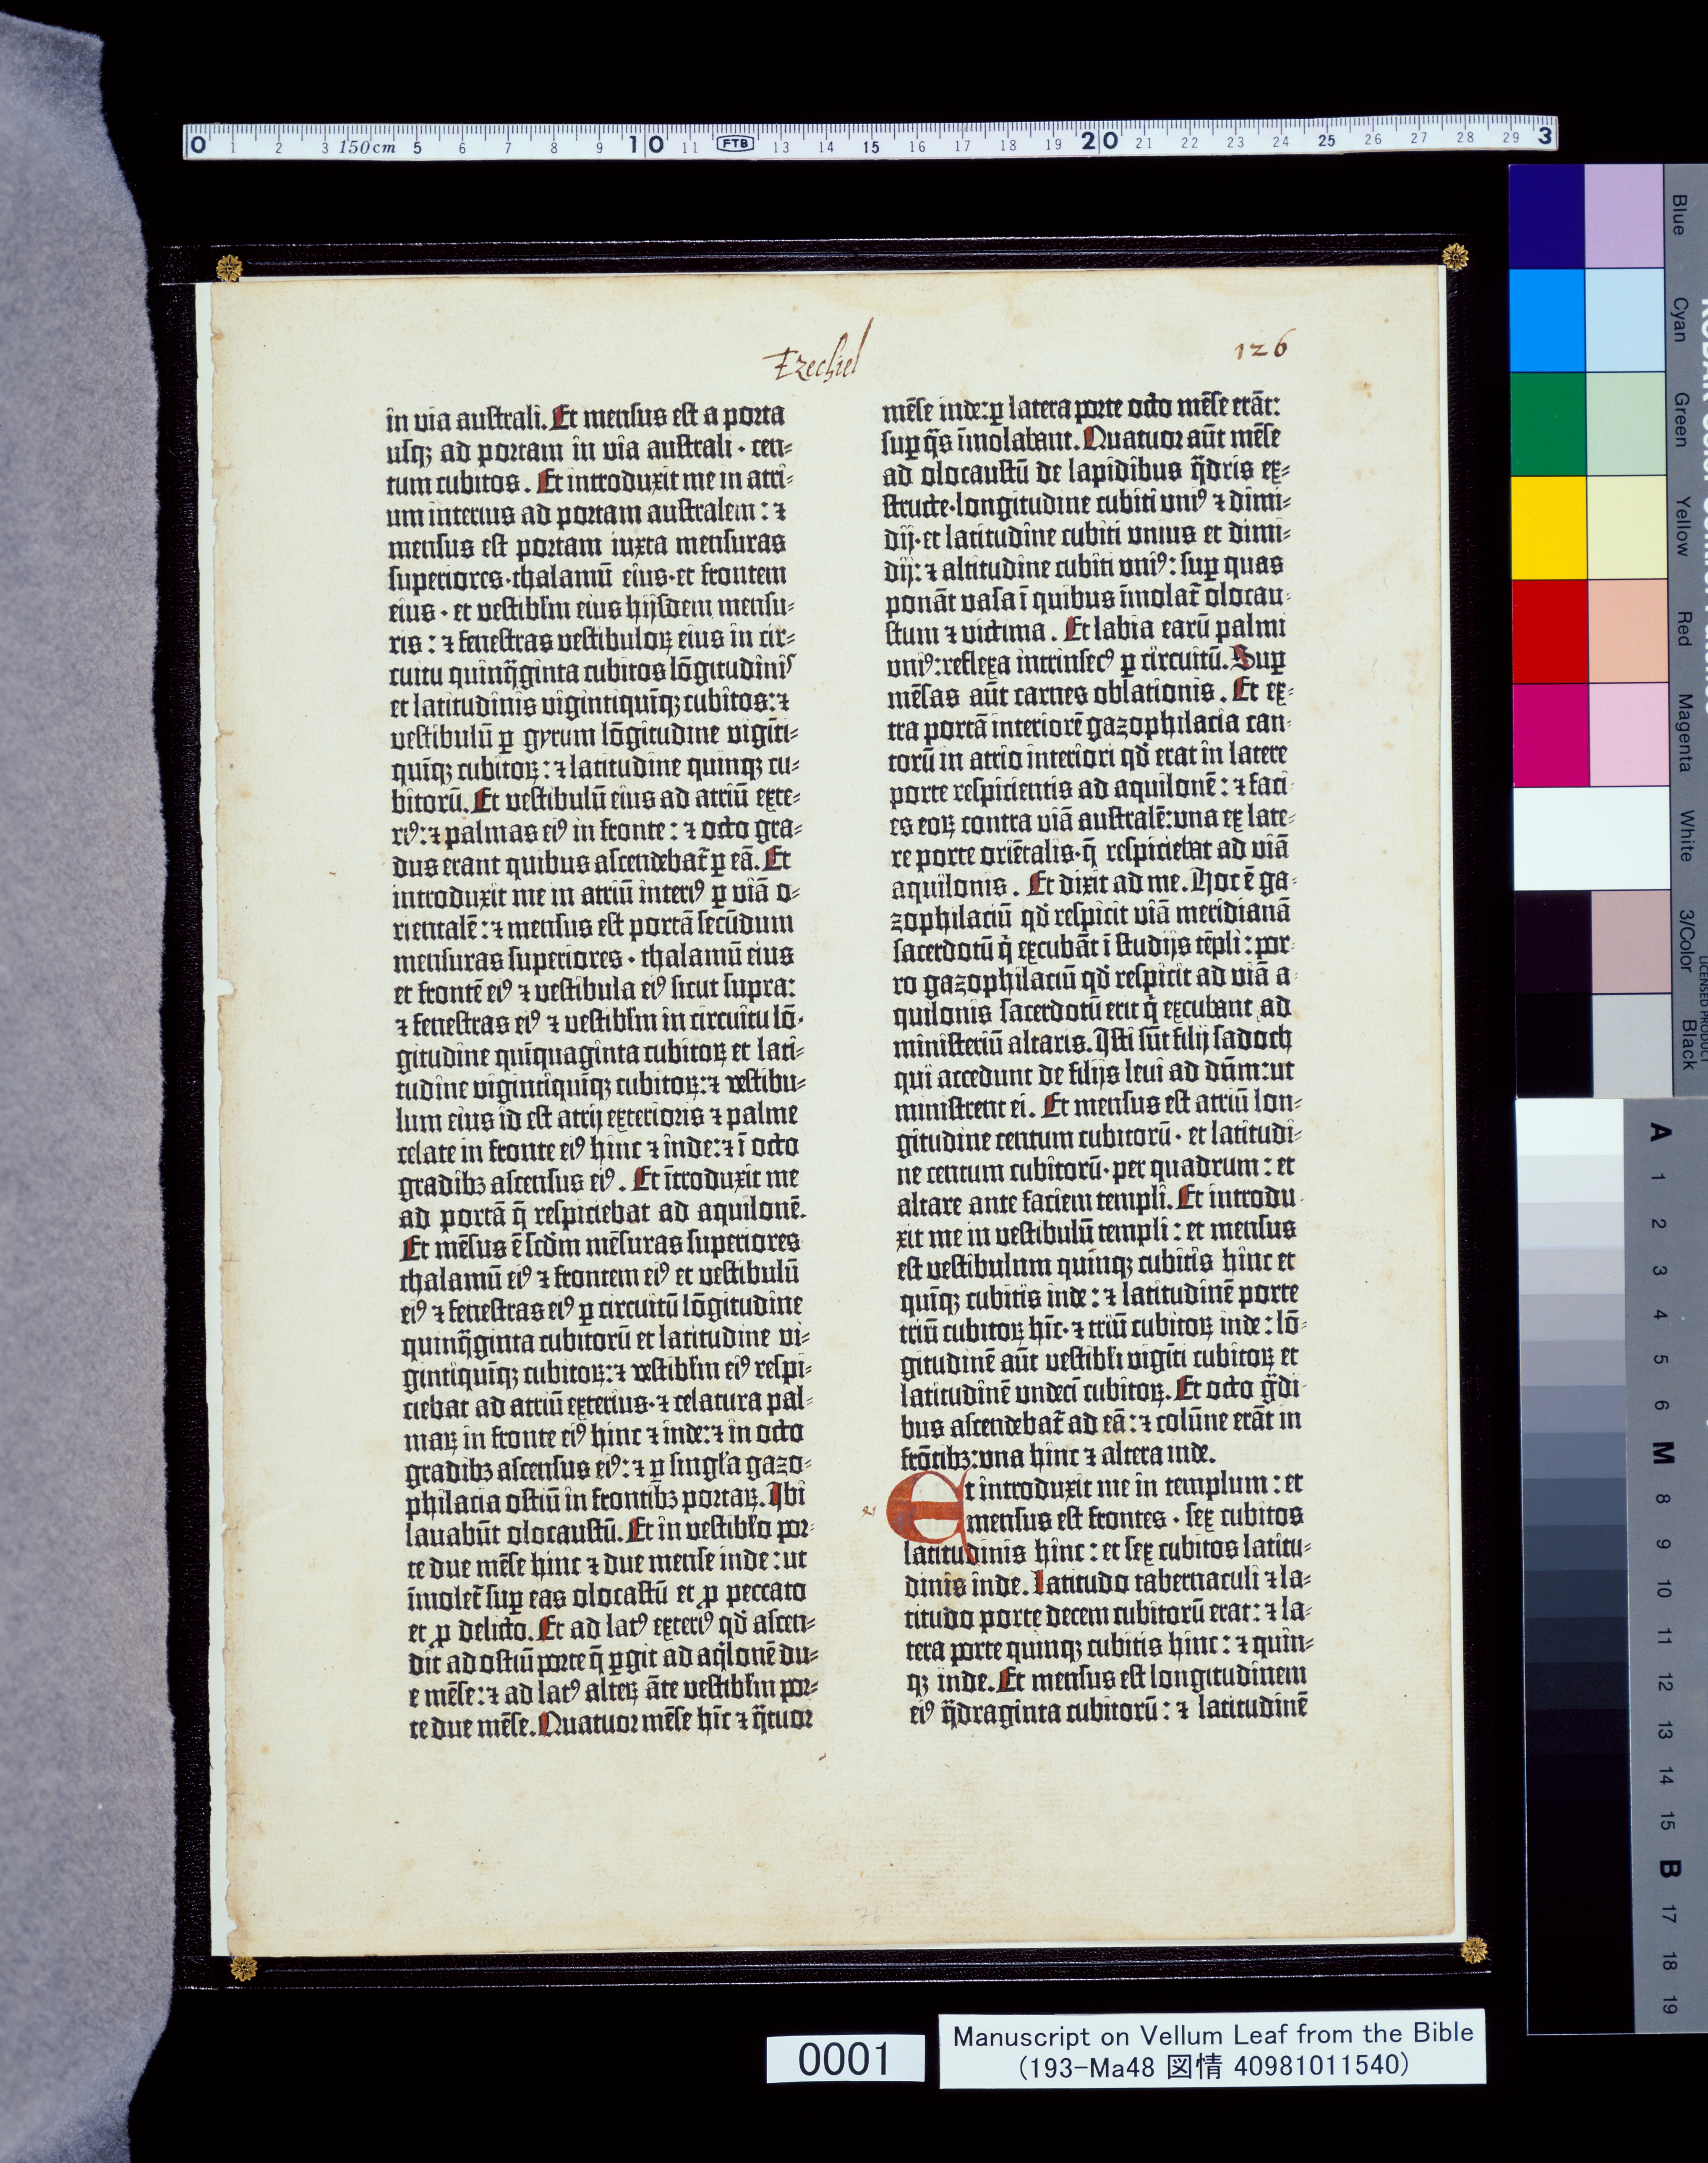 0 1 2 3 150cm 5 6 7 8 9 10 11 FTB 13 14 15 16 17 18 19 20 21 22 23 24 25 26 27 28 29 3
Ezechiel
126
in via australi. Et mensus est a porta
usqꝫ ad portam in via australi · cen⸗
tum cubitos. Et introduxit me in atri⸗
um interius ad portam australem : ⁊
mensus est portam iuxta mensuras
superiores·thalamū eius·et frontem
eius · et vestiblm̄ eius hijsdem mensu⸗
ris : ⁊ fenestras vestibuloꝝ eius in cir⸗
cuitu quinq̄ginta cubitos lōgitudinis
et latitudinis vigintiquīqꝫ cubitos:⁊
vestibulū ꝑ gyrum lōgitudine vigīti⸗
quīqꝫ cubitoꝝ : ⁊ latitudine quinqꝫ cu⸗
bitorū. Et vestibulū eius ad atriū exte⸗
riꝰ:⁊ palmas eiꝰ in fronte : ⁊ octo gra⸗
dus erant quibus ascendebat̄ ꝑ eā. Et
introduxit me in atriū interiꝰ ꝑ viā o⸗
rientalē : ⁊ mensus est portā secūdum
mensuras superiores · thalamū eius
et frontē eiꝰ ⁊ vestibula eiꝰ sicut supra:
⁊ fenestras eiꝰ ⁊ vestiblm̄ in circuitu lō⸗
gitudine quīquaginta cubitoꝝ et lati⸗
tudine vigintiquīqꝫ cubitoꝝ:⁊ vestibu⸗
lum eius id est atrij exterioris ⁊ palme
celate in fronte eiꝰ hinc ⁊ inde:⁊ ī octo
gradibꝫ ascensus eiꝰ. Et ītroduxit me
ad portā q̄ respiciebat ad aquilonē.
Et mēsus ē scd̄m mēsuras superiores
thalamū eiꝰ ⁊ frontem eiꝰ et vestibulū
eiꝰ ⁊ fenestras eiꝰ ꝑ circuitū lōgitudine
quinq̄ginta cubitorū et latitudine vi⸗
gintiquīqꝫ cubitoꝝ:⁊ vestiblm̄ eiꝰ respi⸗
ciebat ad atriū exterius·⁊ celatura pal⸗
maꝝ in fronte eiꝰ hinc ⁊ inde:⁊ in octo
gradibꝫ ascensus eiꝰ: ⁊ ꝑ singl̄a gazo⸗
philacia ostiū in frontibꝫ portaꝝ. Ibi
lavabūt olocaustū. Et in vestibl̄o por⸗
te due mēse hinc ⁊ due mense inde : ut
īmolet̄ suꝑ eas olocastū et ꝓ peccato
et ꝓ delicto. Et ad latꝰ exteriꝰ qd̄ ascen⸗
dit ad ostiū porte q̄ ꝑgit ad aq̇lonē du⸗
e mēse:⁊ ad latꝰ alteꝝ āte vestiblm̄ por⸗
te due mēse. Quatuor mēse hīc ⁊ q̄tuor
mēse inde:ꝑ latera porte octo mēse erāt:
suꝑ q̄s īmolabant. Quatuor aūt mēse
ad olocaustū de lapidibus q̄dris ex⸗
structe·longitudine cubiti vniꝰ ⁊ dimi⸗
dij·et latitudine cubiti vnius et dimi⸗
dij : ⁊ altitudine cubiti vniꝰ : suꝑ quas
ponāt vasa ī quibus īmolat̄ olocau⸗
stum ⁊ victima. Et labia earū palmi
vniꝰ:reflexa intrinsecꝰ ꝑ circuitū. Suꝑ
mēsas aūt carnes oblationis. Et ex⸗
tra portā interiorē gazophilacia can⸗
torū in atrio interiori qd̄ erat in latere
porte respicientis ad aquilonē : ⁊ faci⸗
es eoꝝ contra viā australē:vna ex late⸗
re porte oriētalis·q̄ respiciebat ad viā
aquilonis. Et dixit ad me. Hoc ē ga⸗
zophilaciū qd̄ respicit viā meridianā
sacerdotū q̇ excubāt ī studijs tēpli : por⸗
ro gazophilaciū qd̄ respicit ad viā a⸗
quilonis sacerdotū erit q̇ excubant ad
ministeriū altaris. Isti sūt filij sadoch
qui accedunt de filijs levi ad dn̄m:ut
ministrent ei. Et mensus est atriū lon⸗
gitudine centum cubitorū · et latitudi⸗
ne centum cubitorū·per quadrum : et
altare ante faciem templi. Et introdu⸗
xit me in vestibulū templi : et mensus
est vestibulum quinqꝫ cubitis hinc et
quīqꝫ cubitis inde : ⁊ latitudinē porte
triū cubitoꝝ hīc·⁊ triū cubitoꝝ inde : lō⸗
gitudinē aūt vestibl̄i vigīti cubitoꝝ et
latitudinē vndecī cubitoꝝ. Et octo g̈di⸗
bus ascendebat̄ ad eā : ⁊ colūne erāt in
frōtibꝫ:vna hinc ⁊ altera inde.
Et introduxit me in templum : et
mensus est frontes · sex cubitos
latitudinis hinc : et sex cubitos latitu⸗
dinis inde. Latitudo tabernaculi ⁊ la⸗
titudo porte decem cubitorū erat : ⁊ la⸗
tera porte quinqꝫ cubitis hinc : ⁊ quin⸗
qꝫ inde. Et mensus est longitudinem
eiꝰ q̄draginta cubitorū : ⁊ latitudinē
76
0001
Manuscript on Vellum Leaf from the Bible
(193-Ma48 図情 40981011540)
Blue
Cyan
Green
Yellow
Red
Magenta
White
3/Color
Black
LICENSED PRODUCT
A 1 2 3 4 5 6 M 8 9 10 11 12 13 14 15 B 17 18 19